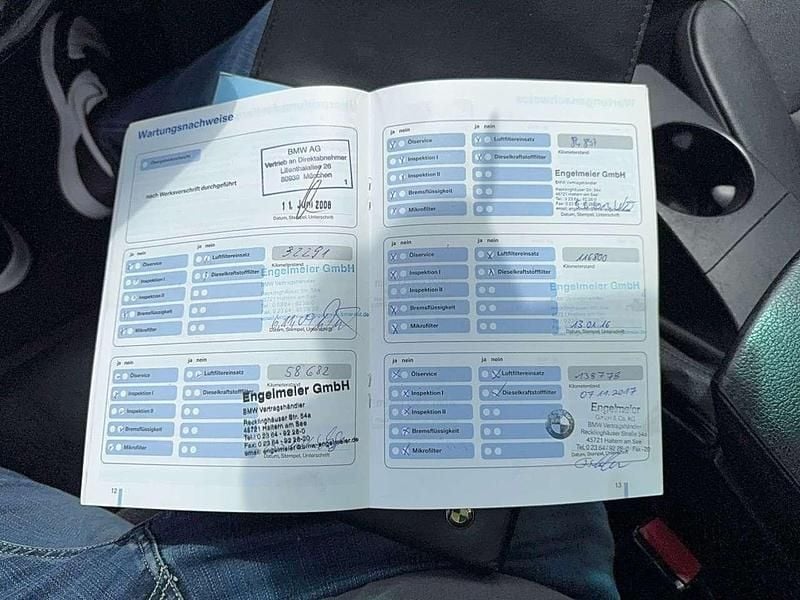 Wartungsnachweise
BMW AG
Vertrieb an Direktabnehmer
Lilienthalallee 26
80939 München
1
nach Werksvorschrift durchgeführt
11. JUNI 2008
Datum, Stempel, Unterschrift
ja nein
ja nein
32291
Ölservice
Luftfiltereinsatz
Kilometerstand
Inspektion I
Dieselkraftstofffilter
Engelmeier GmbH
Inspektion II
BMW Vertragshändler
Bremsflüssigkeit
Mikrofilter
Datum, Stempel, Unterschrift
ja nein
ja nein
58682
Ölservice
Luftfiltereinsatz
Kilometerstand
Inspektion I
Dieselkraftstofffilter
Engelmeier GmbH
BMW Vertragshändler
Inspektion II
Recklinghäuser Str. 54a
45721 Haltern am See
Bremsflüssigkeit
Tel.: 0 23 64 - 92 28-0
Mikrofilter
Datum, Stempel, Unterschrift
12
ja nein
ja nein
Ölservice
Luftfiltereinsatz
Kilometerstand
Inspektion I
Dieselkraftstofffilter
Engelmeier GmbH
Inspektion II
BMW Vertragshändler
Bremsflüssigkeit
Mikrofilter
Datum, Stempel, Unterschrift
ja nein
ja nein
116800
Ölservice
Luftfiltereinsatz
Kilometerstand
Inspektion I
Dieselkraftstofffilter
Engelmeier GmbH
Inspektion II
Bremsflüssigkeit
Mikrofilter
13.01.16
Datum, Stempel, Unterschrift
ja nein
ja nein
138778
Ölservice
Luftfiltereinsatz
Kilometerstand
07.11.2017
Inspektion I
Dieselkraftstofffilter
Engelmeier
GmbH & Co. KG
Inspektion II
BMW Vertragshändler
Bremsflüssigkeit
Recklinghäuser Straße 54a
45721 Haltern am See
Mikrofilter
Datum, Stempel, Unterschrift
13